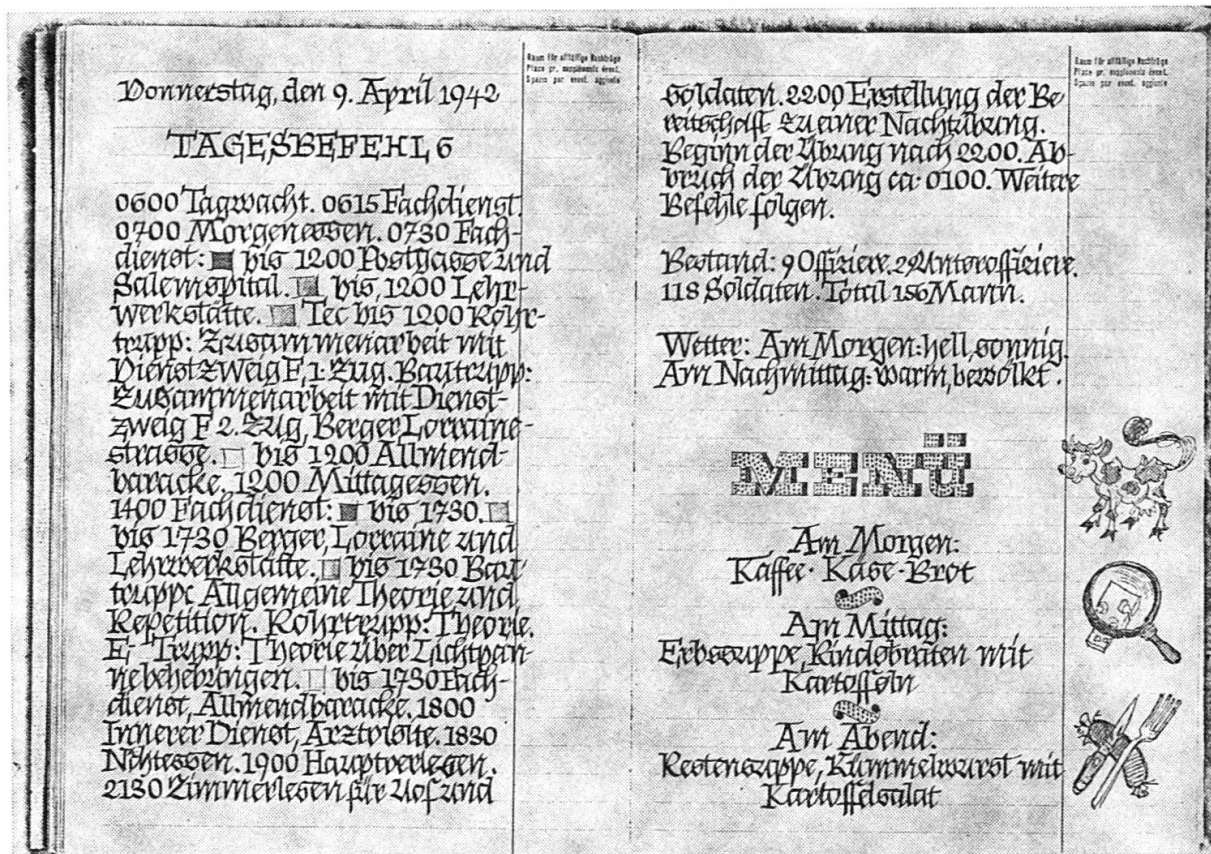 Raum für allfällige Nachträge
Place pr. suppléments évent.
Spazio per event. aggiunte
Donnerstag, den 9. April 1942
TAGESBEFEHL 6
0600 Tagwacht. 0615 Fachdienst.
0700 Morgenessen. 0730 Fach-
dienst: bis 1200 Postgasse und
Salemspital. bis 1200 Lehr-
werkstätte. Tec bis 1200 Rohr-
trupp: Zusammenarbeit mit
Dienstzweig F, 1. Zug. Bautrupp:
Zusammenarbeit mit Dienst-
zweig F 2. Zug, Berger Lorraine-
strasse. bis 1200 Allmend-
baracke. 1200 Mittagessen.
1400 Fachdienst: bis 1730.
bis 1730 Berger, Lorraine und
Lehrwerkstätte. bis 1730 Bau-
trupp: Allgemeine Theorie und
Repetition. Rohrtrupp: Theorie.
E-Trupp: Theorie über Lichtpan-
nebehebungen. bis 1730 Fach-
dienst, Allmendbaracke. 1800
Innerer Dienst, Arztvisite. 1830
Nachtessen. 1900 Hauptverlesen.
2130 Zimmerlesen für Uof und
Raum für allfällige Nachträge
Place pr. suppléments évent.
Spazio per event. aggiunte
Soldaten. 2200 Erstellung der Be-
reitschaft zu einer Nachtübung.
Beginn der Übung nach 2200. Ab-
bruch der Übung ca. 0100. Weitere
Befehle folgen.
Bestand: 9 Offiziere. 29 Unteroffiziere.
118 Soldaten. Total 156 Mann.
Wetter: Am Morgen: hell, sonnig.
Am Nachmittag: warm, bewölkt.
MENÜ
Am Morgen:
Kaffee · Käse · Brot
Am Mittag:
Erbssuppe, Rindsbraten mit
Kartoffeln
Am Abend:
Restensuppe, Kümmelwurst mit
Kartoffelsalat